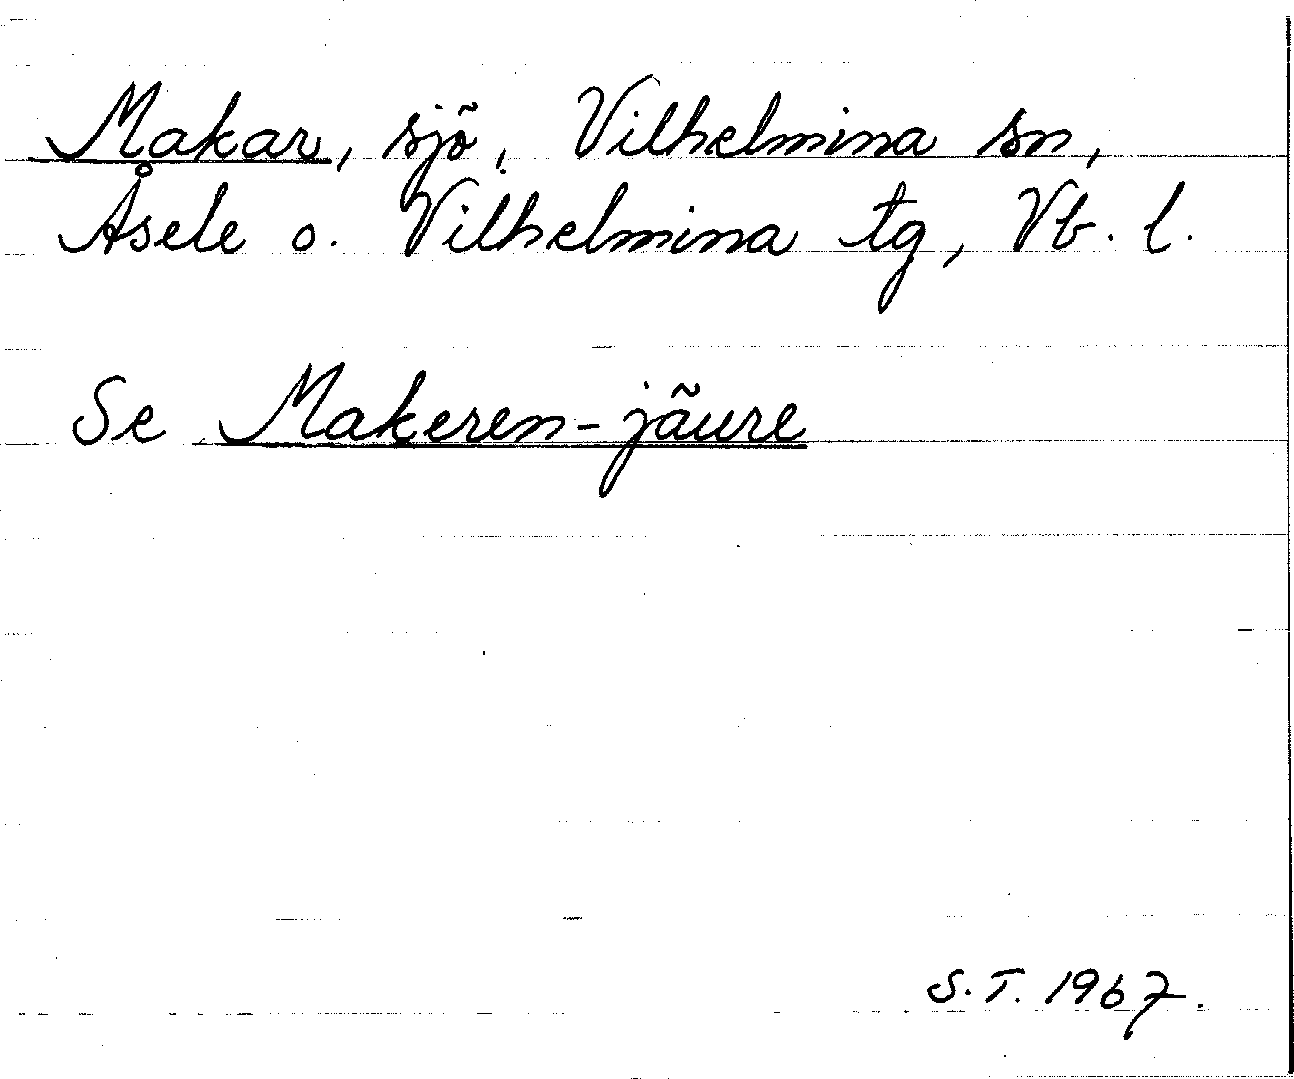 Makar, sjö, Vilhelmina sn,
Åsele o. Vilhelmina tg, Vb. l.
Se Makeren-jäure
S.T. 1967.